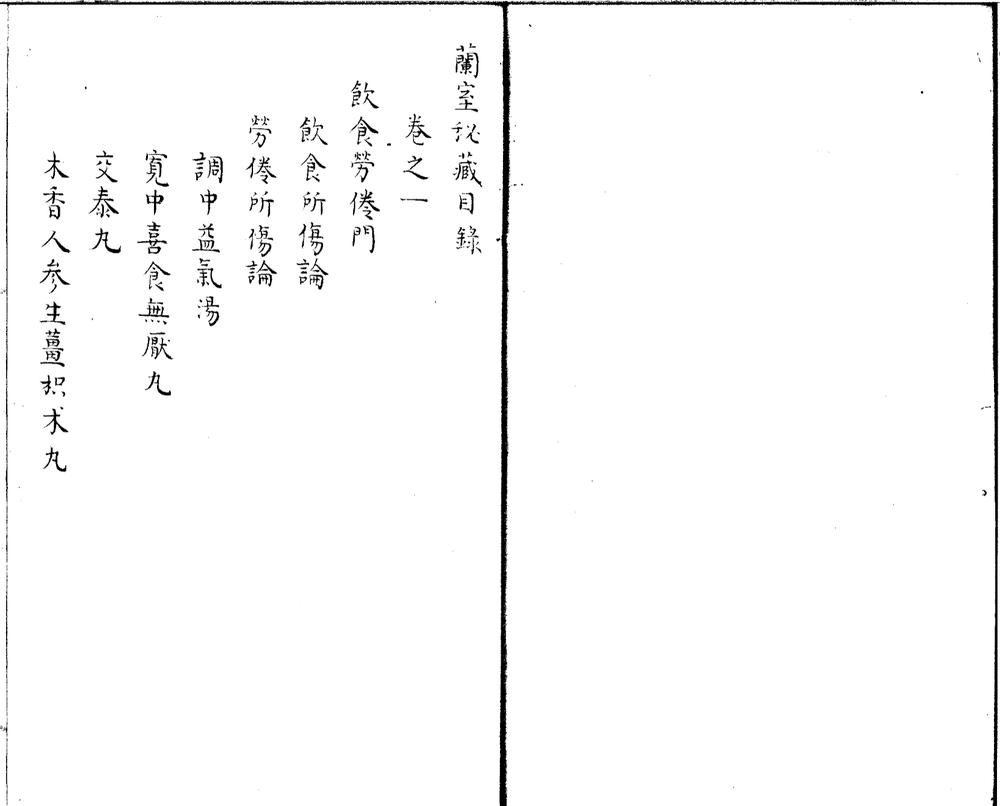 蘭室秘藏目錄
卷之一
飲食勞倦門
飲食所傷論
勞倦所傷論
調中益氣湯
寬中喜食無厭丸
交泰丸
木香人參生薑枳术丸